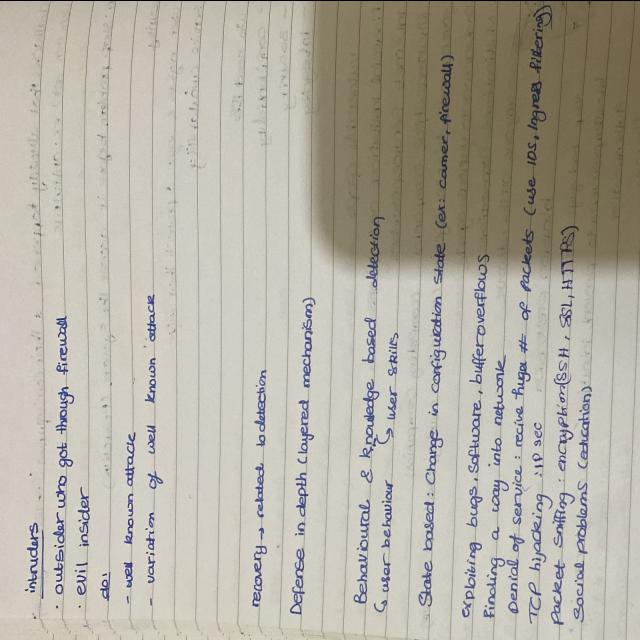 intruders
· outsider who got through firewall
· evil insider
do:
- well known attack
- variation of well known attack
recovery → related to detection
Defense in depth (layered mechanism)
Behavioural & knowledge based detection
↳ user behaviour ↳ user skills
State based: Change in configuration state (ex: camer, firewall)
exploiting bugs, software, buffer overflows
Finding a way into network
Denial of service: recive huge # of packets (use IDS, Ingress filtering)
TCP hijacking: IP sec
packet sniffing: encryption (SSH, SSl, HTTPS)
Social problems (education)